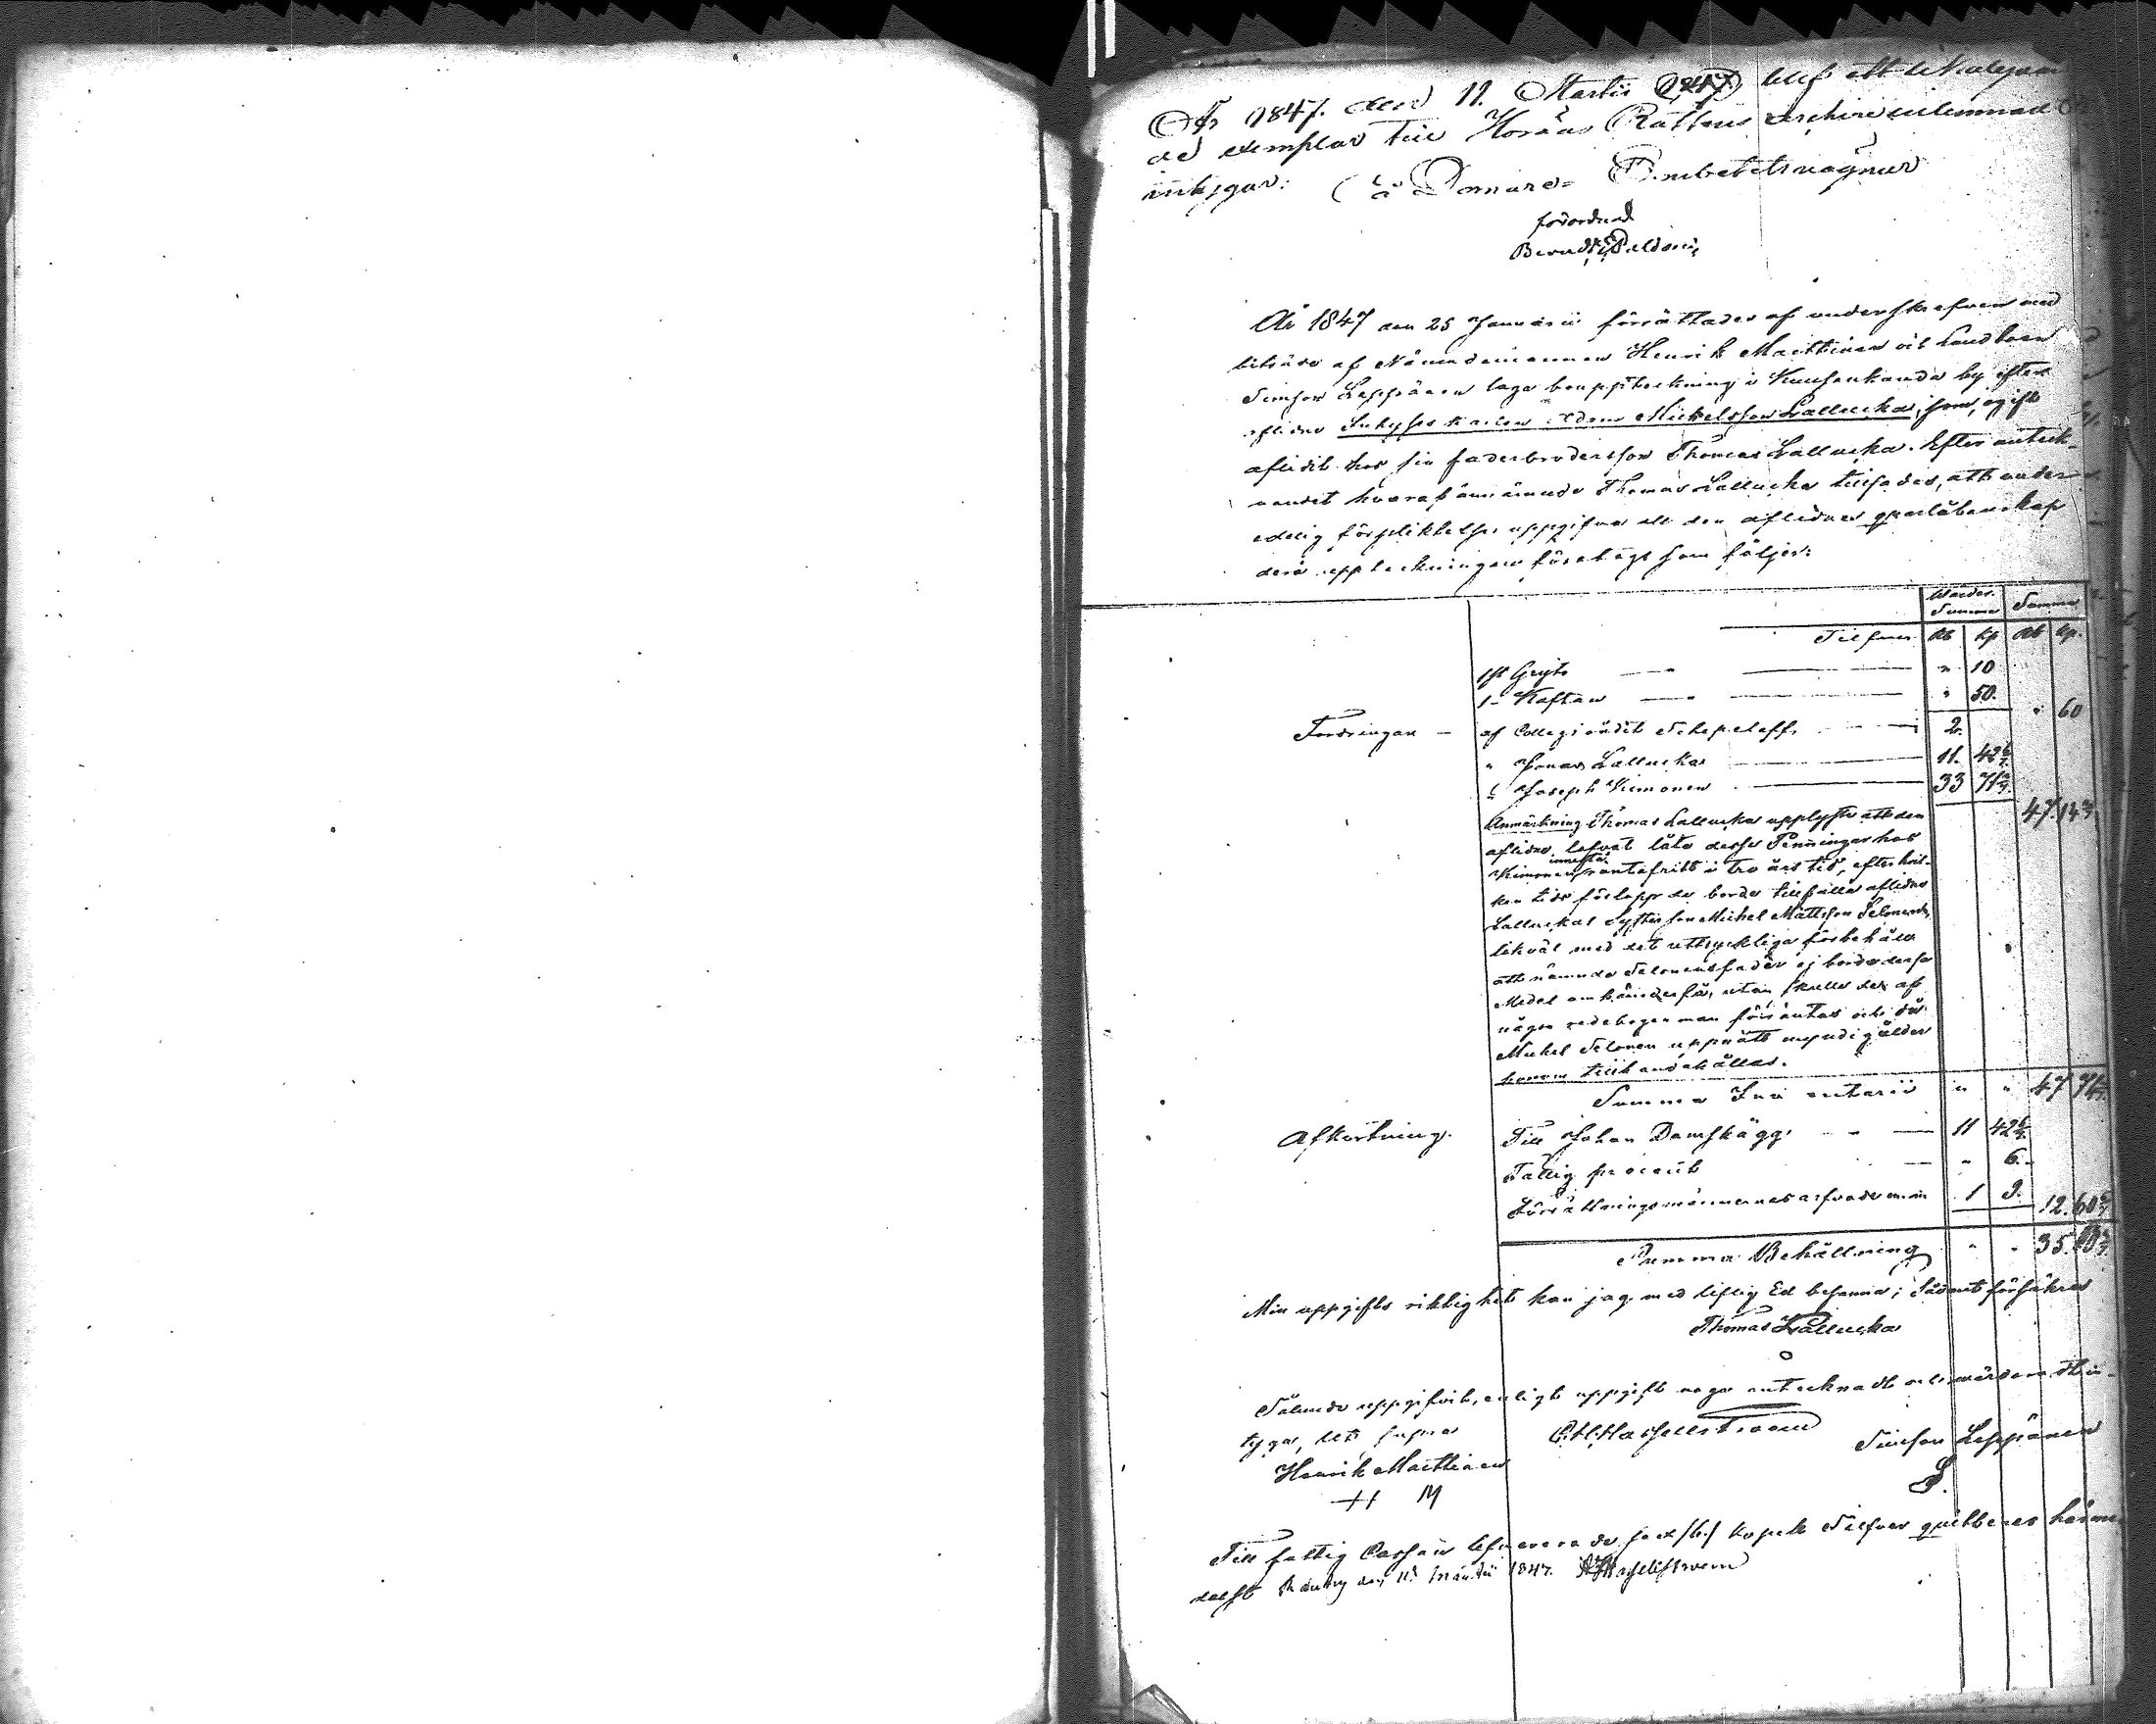 År 1847. den 11. Martii blef ett lika lydan
de exemplar till Horads Rättens archiv inlemnad
intygar: å Domare Embetets vägnar
förordnad
År 1847 den 25 Januarii förrättades af underskrefven med
biträde af Nämndemannen Henrik Maittinen och Landboen
Simson Leppänen laga bouppteckning i Kuusankanda by efter
aflidne Inhyses karlen Adam Mickelsson Lallucka, som, ogift
aflidit hos sin faderbrodersson Thomas Lallucka. Efter anteck-
nandet hvaraf ämnämnde Thomas Lallucka tillsades, att under
edelig förpliktelse uppgifva all den aflidnes qvarlåtenskap
derå uppteckningen företogs som följer:
Värder. Summa Summa
Silfver Rb Kp Rb Kp.
1 st Gryta " 10
1 - Kaftan " 50. " 60
Fordringar - af Collegirådet Schepeleff 2.
" Jonas Lallucka 11. 42 6/7
" Joseph Kimonen 33 71 3/7 47. 14 2/7
Anmärkning Thomas Lallucka upplyste att den
aflidne lofvat låta desse Penningar hos
Kimonen innestå räntefritt i tro års tid, efter hvil-
ken tids förlopp de borde tillfalla aflidne
Lalluckas Systerson Michel Mattsson Selonen,
likväl med det uttryckliga förbehåll
att nämnde Selonens fader ej borde desse
Medel om händer få, utan skulle de af
någon redebogen man förräntas och då
Mickel Selonen uppnått myndig ålder
honom tillhandahållas.
Summa Inventarii " " 47 74 2/7
Afkortning. Till Johan Damskägg 11 42 6/7
Fattig procent " 6.
Förrättningsmännernas arfvode 1 9. 12. 60
Summa Behållning " " 35.
Min uppgifts riktighet kan jag med liflig Ed besanna; Sådant försäkras
Thomas Lallucka
Sålunda uppgifvit, enligt uppgift noga antecknadt och värderadt in-
tyga, Ut supra
Henrik Maittinen Simson Leppänen
H M
Till fattig Cassan lefverera de sex /6./ kopek Silfver qvitteras härme
delst den 11. Martii 1847.